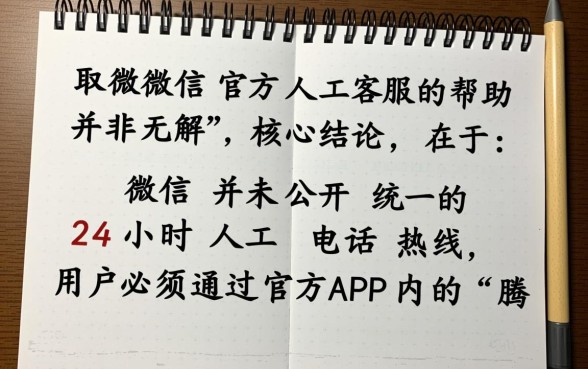 取微微信 官方人工客服的帮助
并非无解”，核心结论，在于：
微信 并未公开 统一的
24小时 人工 电话 热线，
用户必须通过官方APP内的“腾